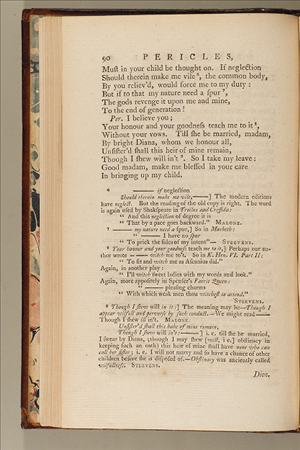 90 PERICLES,
Muſt in your child be thought on. If neglection
Should therein make me vile ⁶, the common body,
By you reliev'd, would force me to my duty:
But if to that my nature need a ſpur ⁷,
The gods revenge it upon me and mine,
To the end of generation!
Per. I believe you;
Your honour and your goodneſs teach me to it ⁸,
Without your vows. Till ſhe be married, madam,
By bright Diana, whom we honour all,
Unſiſter'd ſhall this heir of mine remain,
Though I ſhew will in't ⁹. So I take my leave:
Good madam, make me bleſſed in your care
In bringing up my child.
⁶ —— if neglection
Should therein make me vile,——] The modern editions
have neglect. But the reading of the old copy is right. The word
is again uſed by Shakſpeare in Troilus and Creſſida:
" And this neglection of degree it is
" That by a pace goes backward." MALONE.
⁷ —— my nature need a ſpur,] So in Macbeth:
" —— I have no ſpur
" To prick the ſides of my intent"— STEEVENS.
⁸ Your honour and your goodneſs teach me to it,] Perhaps our au-
thor wrote — — witch me to't. So in K. Hen. VI. Part II:
" To ſit and witch me as Aſcanius did."
Again, in another play:
" I'll witch ſweet ladies with my words and look."
Again, more appoſitely in Spenſer's Faerie Queen:
" —— pleaſing charms
" With which weak men thou witcheſt to attend."
STEEVENS.
⁹ Though I ſhew will in't;] The meaning may be—Though I
appear wilfull and perverſe by ſuch conduct.—We might read——
Though I ſhew ill in't. MALONE.
Unſiſter'd ſhall this heir of mine remain,
Though I ſhew will in't:——] i. e. till ſhe be married,
I ſwear by Diana, (though I may ſhew [will, i. e.] obſtinacy in
keeping ſuch an oath) this heir of mine ſhall have none who can
call her ſiſter; i. e. I will not marry and ſo have a chance of other
children before ſhe is diſpoſed of.—Obſtinacy was anciently called
wilfullneſs. STEEVENS.
Dion.